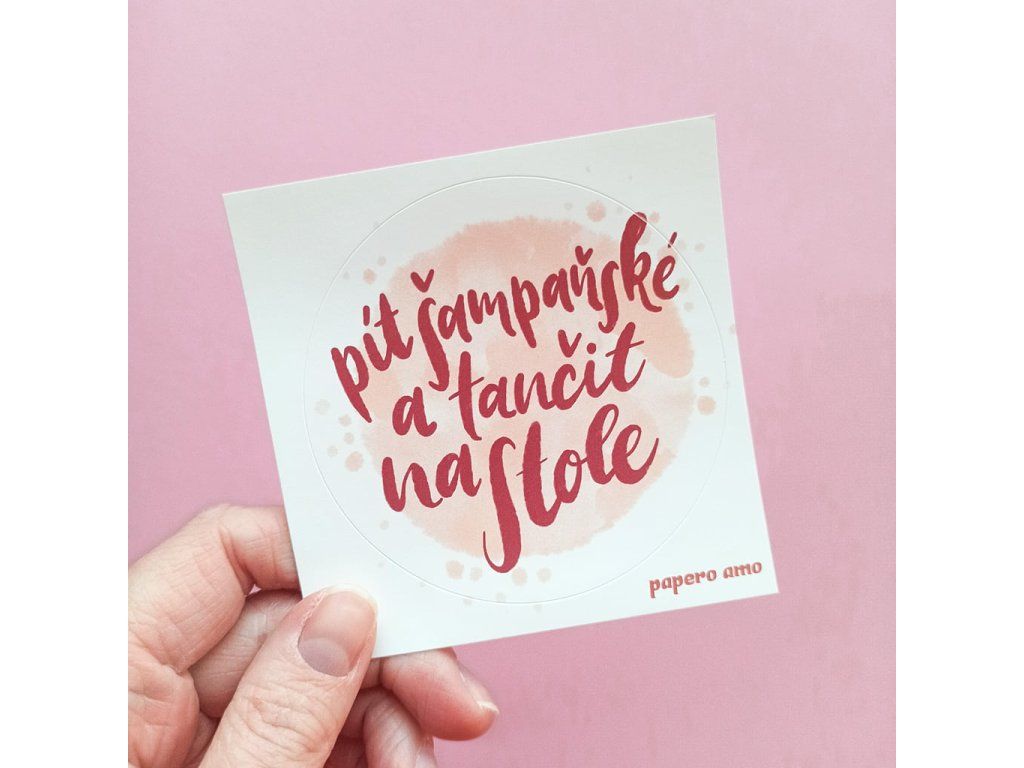 pít šampaňské
a tančit
na stole
papero amo